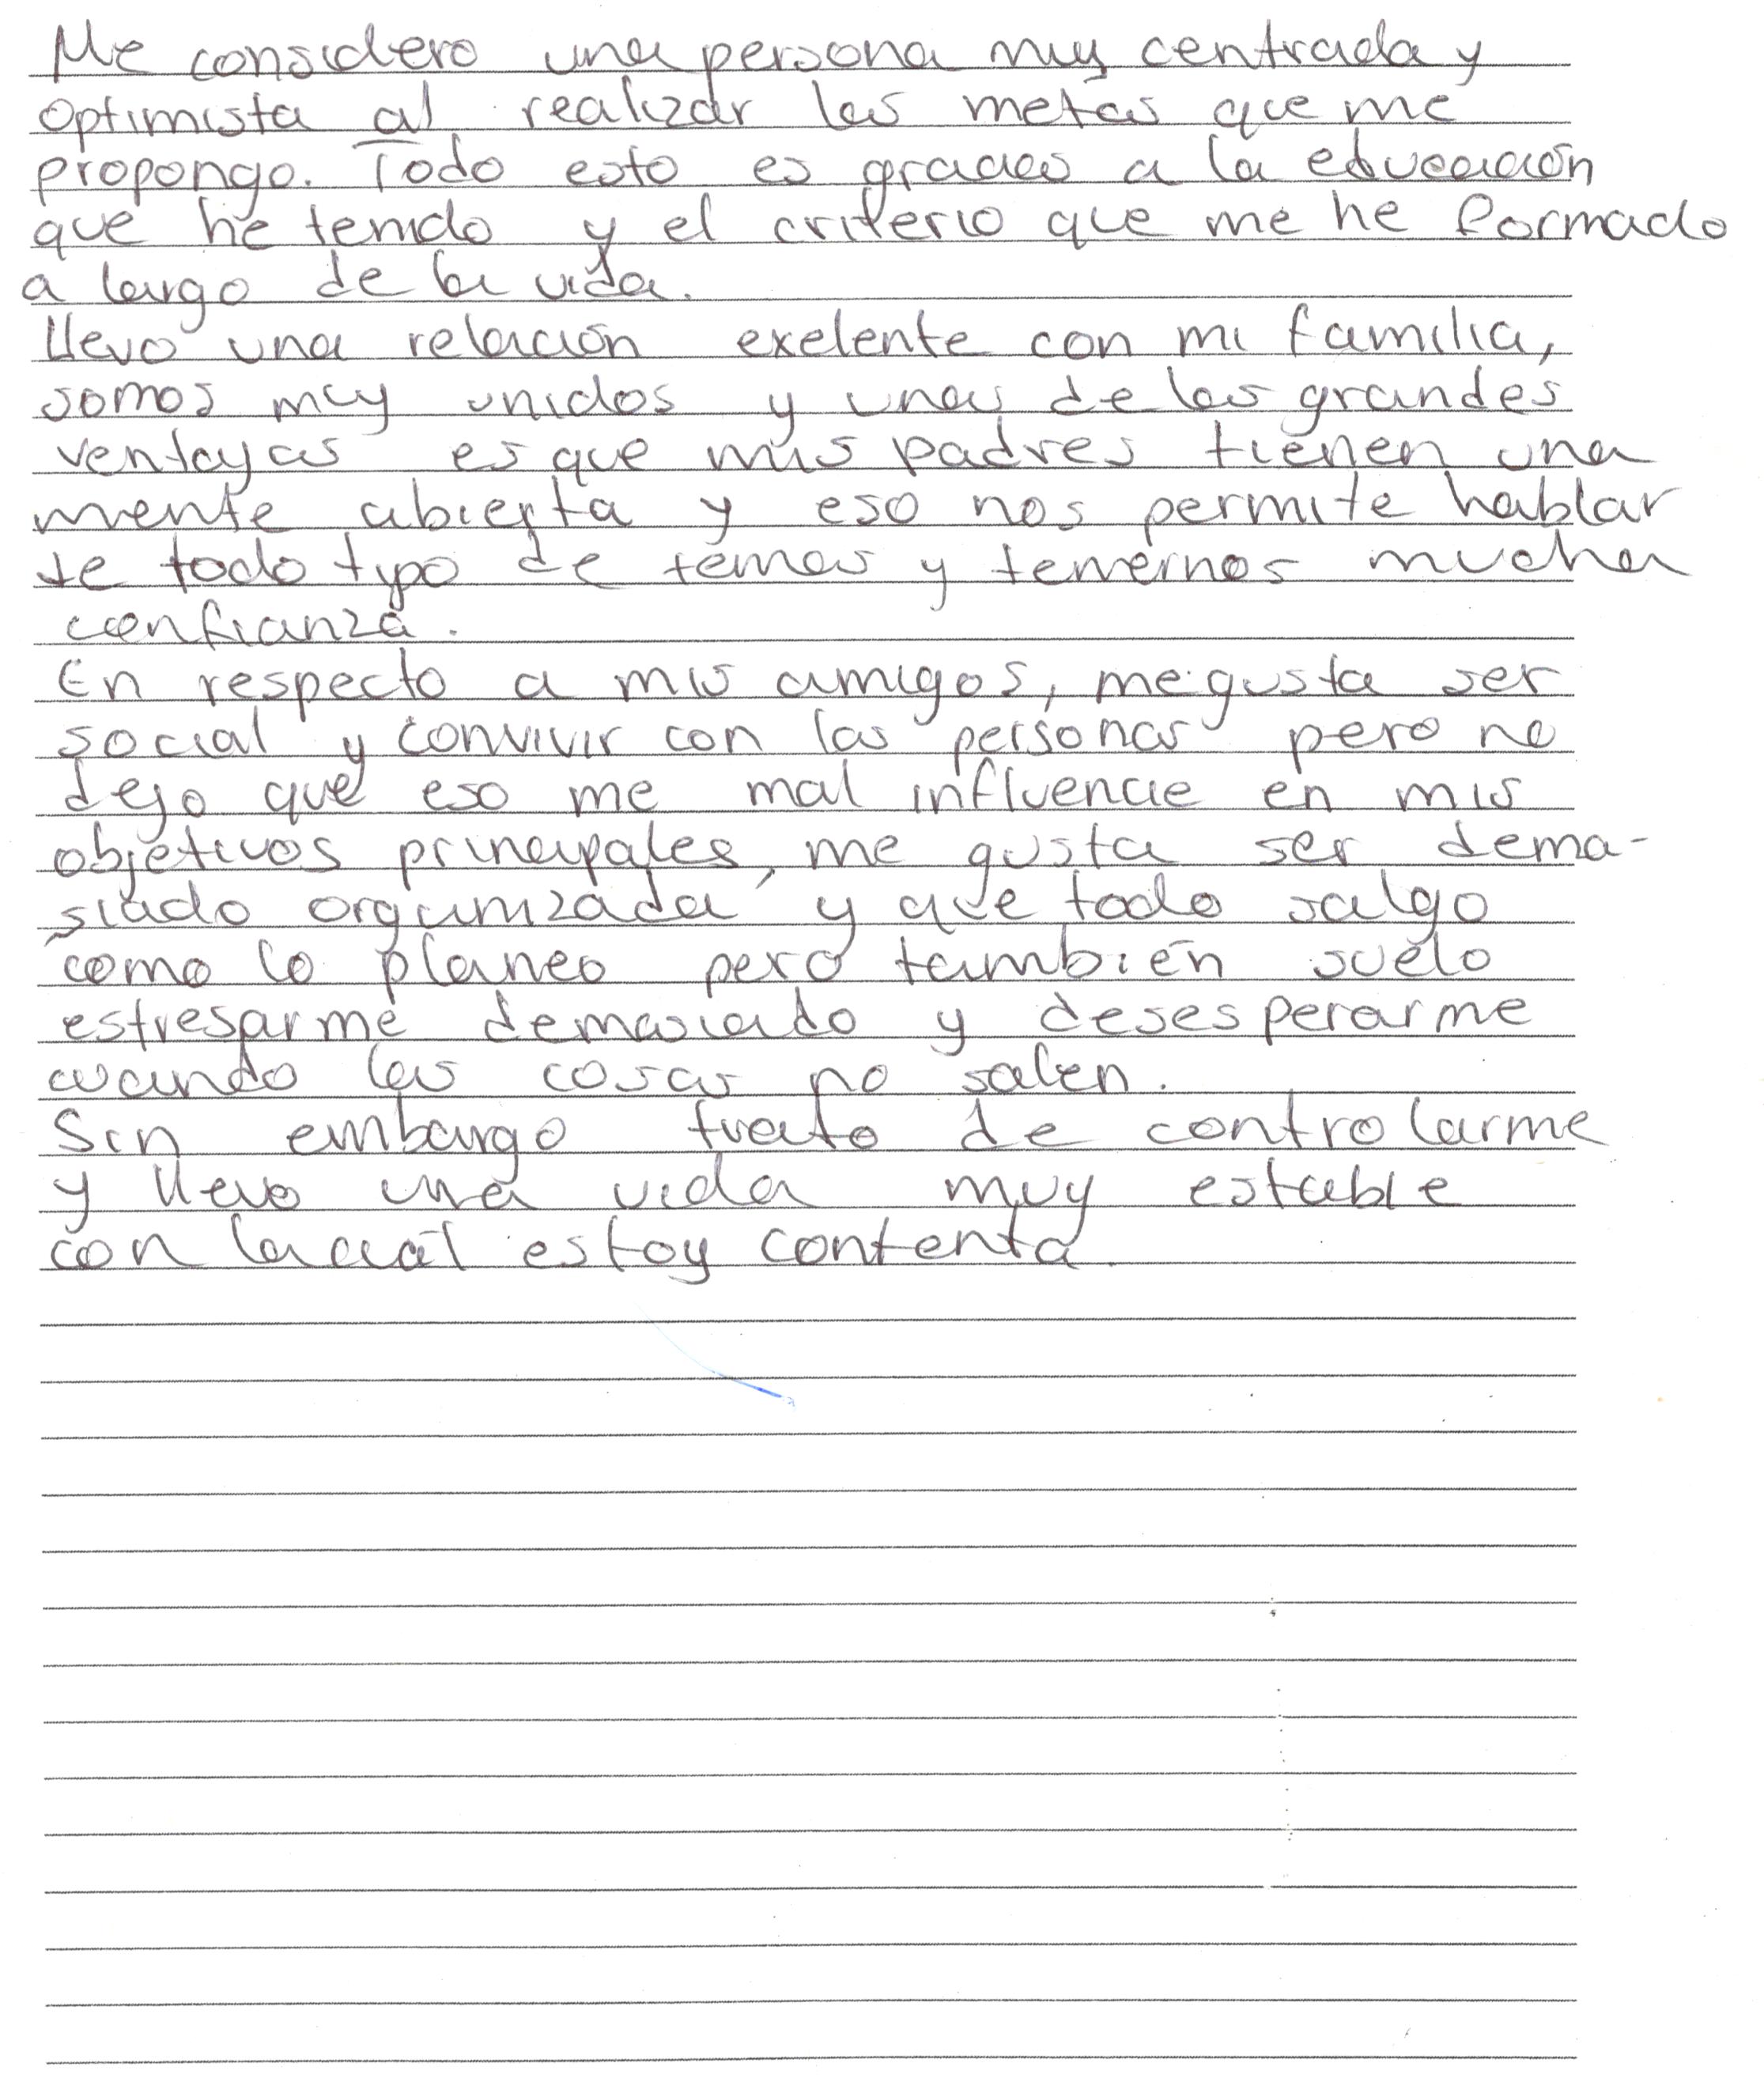 Me considero una persona muy centrada y
optimista al realizar las metas que me
propongo. Todo esto es gracias a la educación
que he tenido y el criterio que me he formado
a largo de la vida.
Llevo una relación exelente con mi familia,
somos muy unidos y unas de las grandes
ventajas es que mis padres tienen una
mente abierta y eso nos permite hablar
de todo tipo de temas y tenernos mucha
confianza.
En respecto a mis amigos, me gusta ser
social y convivir con las personas pero no
dejo que eso me mal influencie en mis
objetivos principales, me gusta ser dema-
siado organizada y que todo salgo
como lo planeo pero también suelo
estresarme demasiado y desesperarme
cuando las cosas no salen.
Sin embargo trato de controlarme
y llevo una vida muy estable
con la cuál estoy contenta.